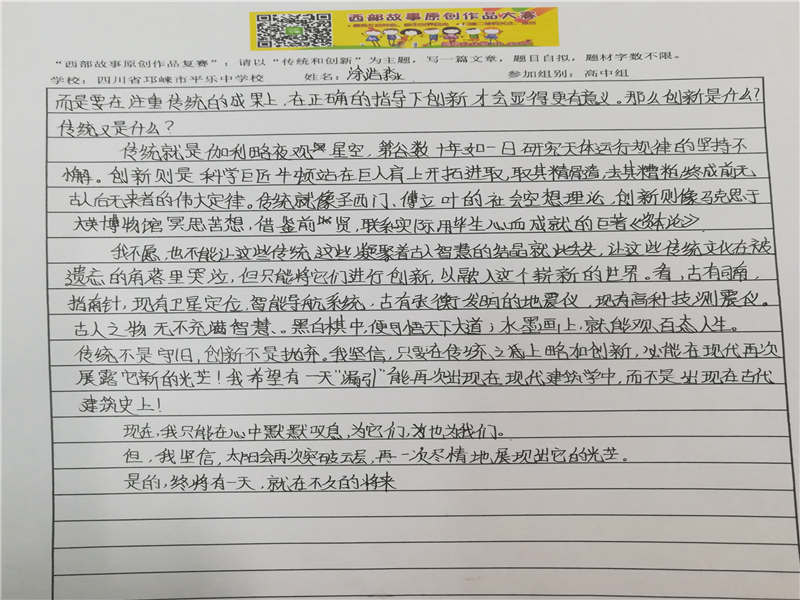 西部故事原创作品大赛
“西部故事原创作品复赛”：请以“传统和创新”为主题，写一篇文章，题目自拟，题材字数不限。
学校：四川省邛崃市平乐中学校 姓名：涂 参加组别：高中组
而是要在注重传统的成果上，在正确的指导下创新才会显得更有意义。那么创新是什么？
传统又是什么？
传统就是伽利略夜观星空，第谷数十年如一日研究天体运行规律的坚持不
懈。创新则是科学巨匠牛顿站在巨人肩上开拓进取，取其精华，去其糟粕，终成前无
古人后无来者的伟大定律。传统就像圣西门、傅立叶的社会空想理论，创新则像马克思于
大英博物馆冥思苦想，借鉴前贤，联系实际用毕生心血成就的巨著《资本论》
我不愿，也不能让这些传统，这些凝聚着古人智慧的结晶就此失，让这些传统文化在被
遗忘的角落里哭泣，但只能将它们进行创新，以融入这个崭新的世界。看，古有司南，
指南针，现有卫星定位，智能导航系统，古有张衡发明的地震仪，现有高科技测震仪。
古人之物无不充满智慧、。黑白棋中，便可悟天下大道；水墨画上，就能观百态人生。
传统不是守旧，创新不是抛弃。我坚信，只要在传统之底上略加创新，必能在现代再次
展露它新的光芒！我希望有一天“漏引”能再次出现在现代建筑学中，而不是出现在古代
建筑史上！
现在，我只能在心中默默叹息，为它们，为也为我们。
但，我坚信，太阳会再次突破云层，再一次尽情地展现出它的光芒。
是的，终将有一天，就在不久的将来